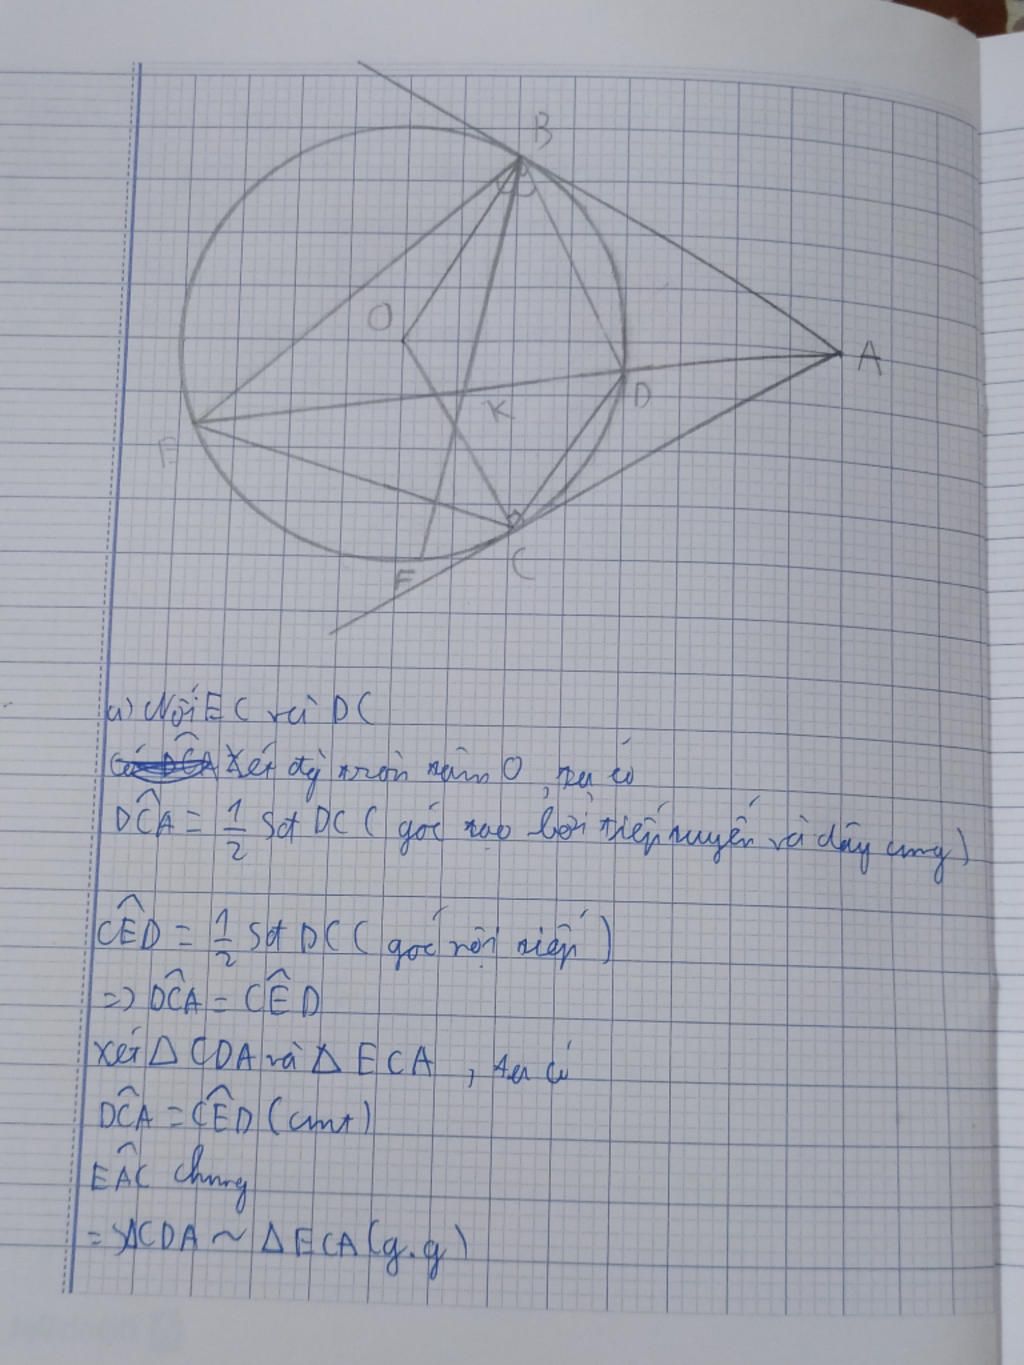 B
O
A
K
D
E
F
C
a) Nối EC và DC
Góc DĈA Xét đg tròn tâm O, ta có
DĈA = 1/2 Sđ DC (góc tạo bởi tiếp tuyến và dây cung)
CÊD = 1/2 Sđ DC (góc nội tiếp)
=> DĈA = CÊD
Xét Δ CDA và Δ ECA, ta có
DĈA = CÊD (cmt)
EÂC chung
=> ΔCDA ~ ΔECA (g.g)